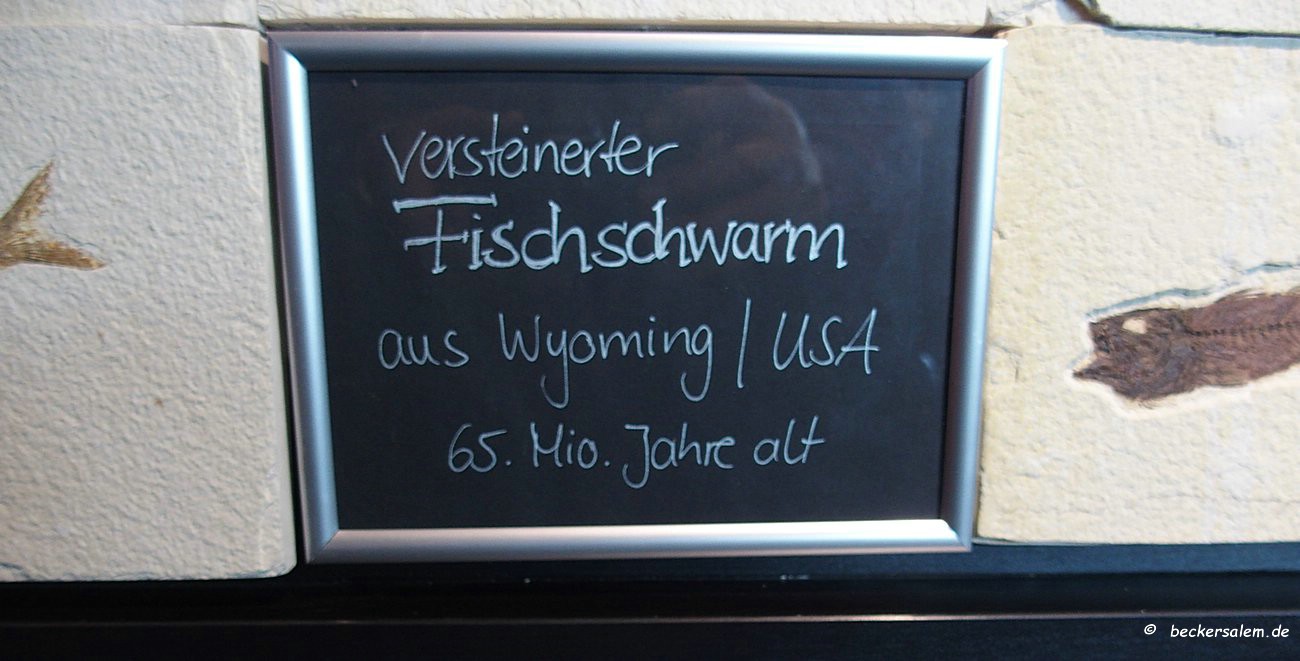 versteinerter
Fischschwarm
aus Wyoming / USA
65. Mio. Jahre alt
© beckersalem.de